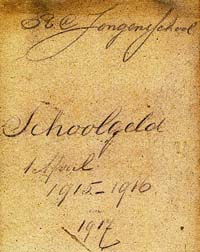 R.C. Jongensschool
Schoolgeld
1 April
1915-1916
1917